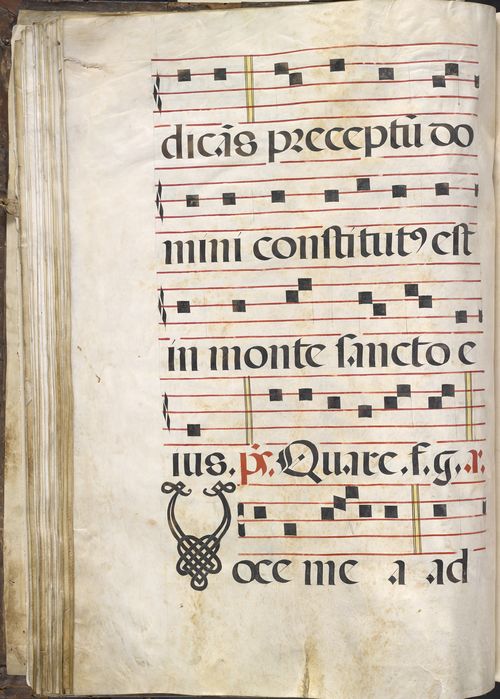 dicãs preceptũ do
mini constitutꝰ est
in monte sancto e
ius. ps̃. Quare .f.g. a.
Voce me a ad